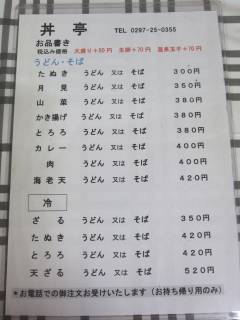 丼亭 TEL 0297-25-0355
お品書き
税込み価格 大盛り＋50円 生卵＋70円 温泉玉子＋70円
うどん・そば
たぬき うどん 又は そば 300円
月見 うどん 又は そば 350円
山菜 うどん 又は そば 380円
かき揚げ うどん 又は そば 380円
とろろ うどん 又は そば 380円
カレー うどん 又は そば 400円
肉 うどん 又は そば 400円
海老天 うどん 又は そば 420円
冷
ざる うどん 又は そば 350円
たぬき うどん 又は そば 420円
とろろ うどん 又は そば 420円
天ざる うどん 又は そば 520円
＊お電話での御注文お受けいたします（お持ち帰り用のみ）